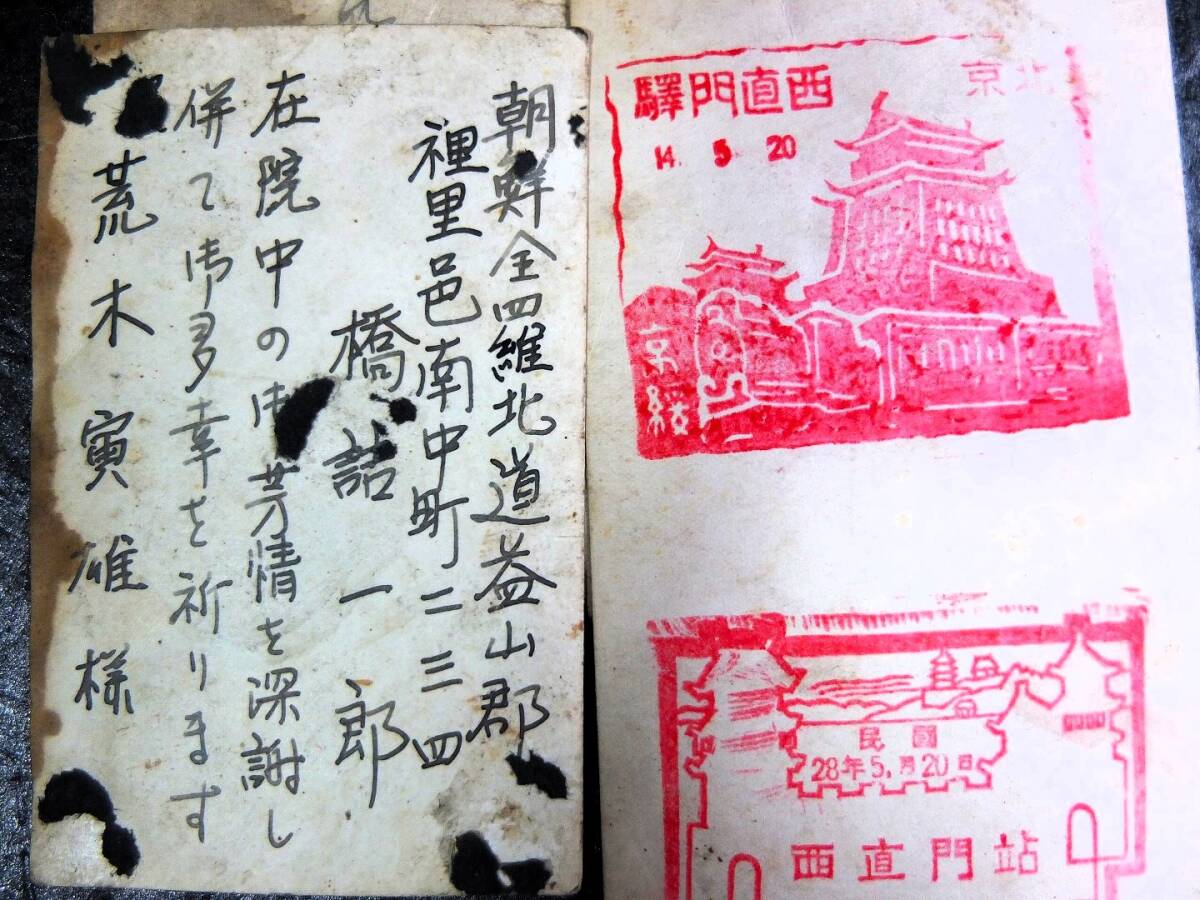 朝鮮全四維北道益山郡
裡里邑南中町二三四
橋詰一郎
在院中の御芳情を深謝し
併て御多幸を祈ります
荒木寅雄様
北京
西直門驛
14. 5 20
京綏
民國
28年5月20日
西直門站